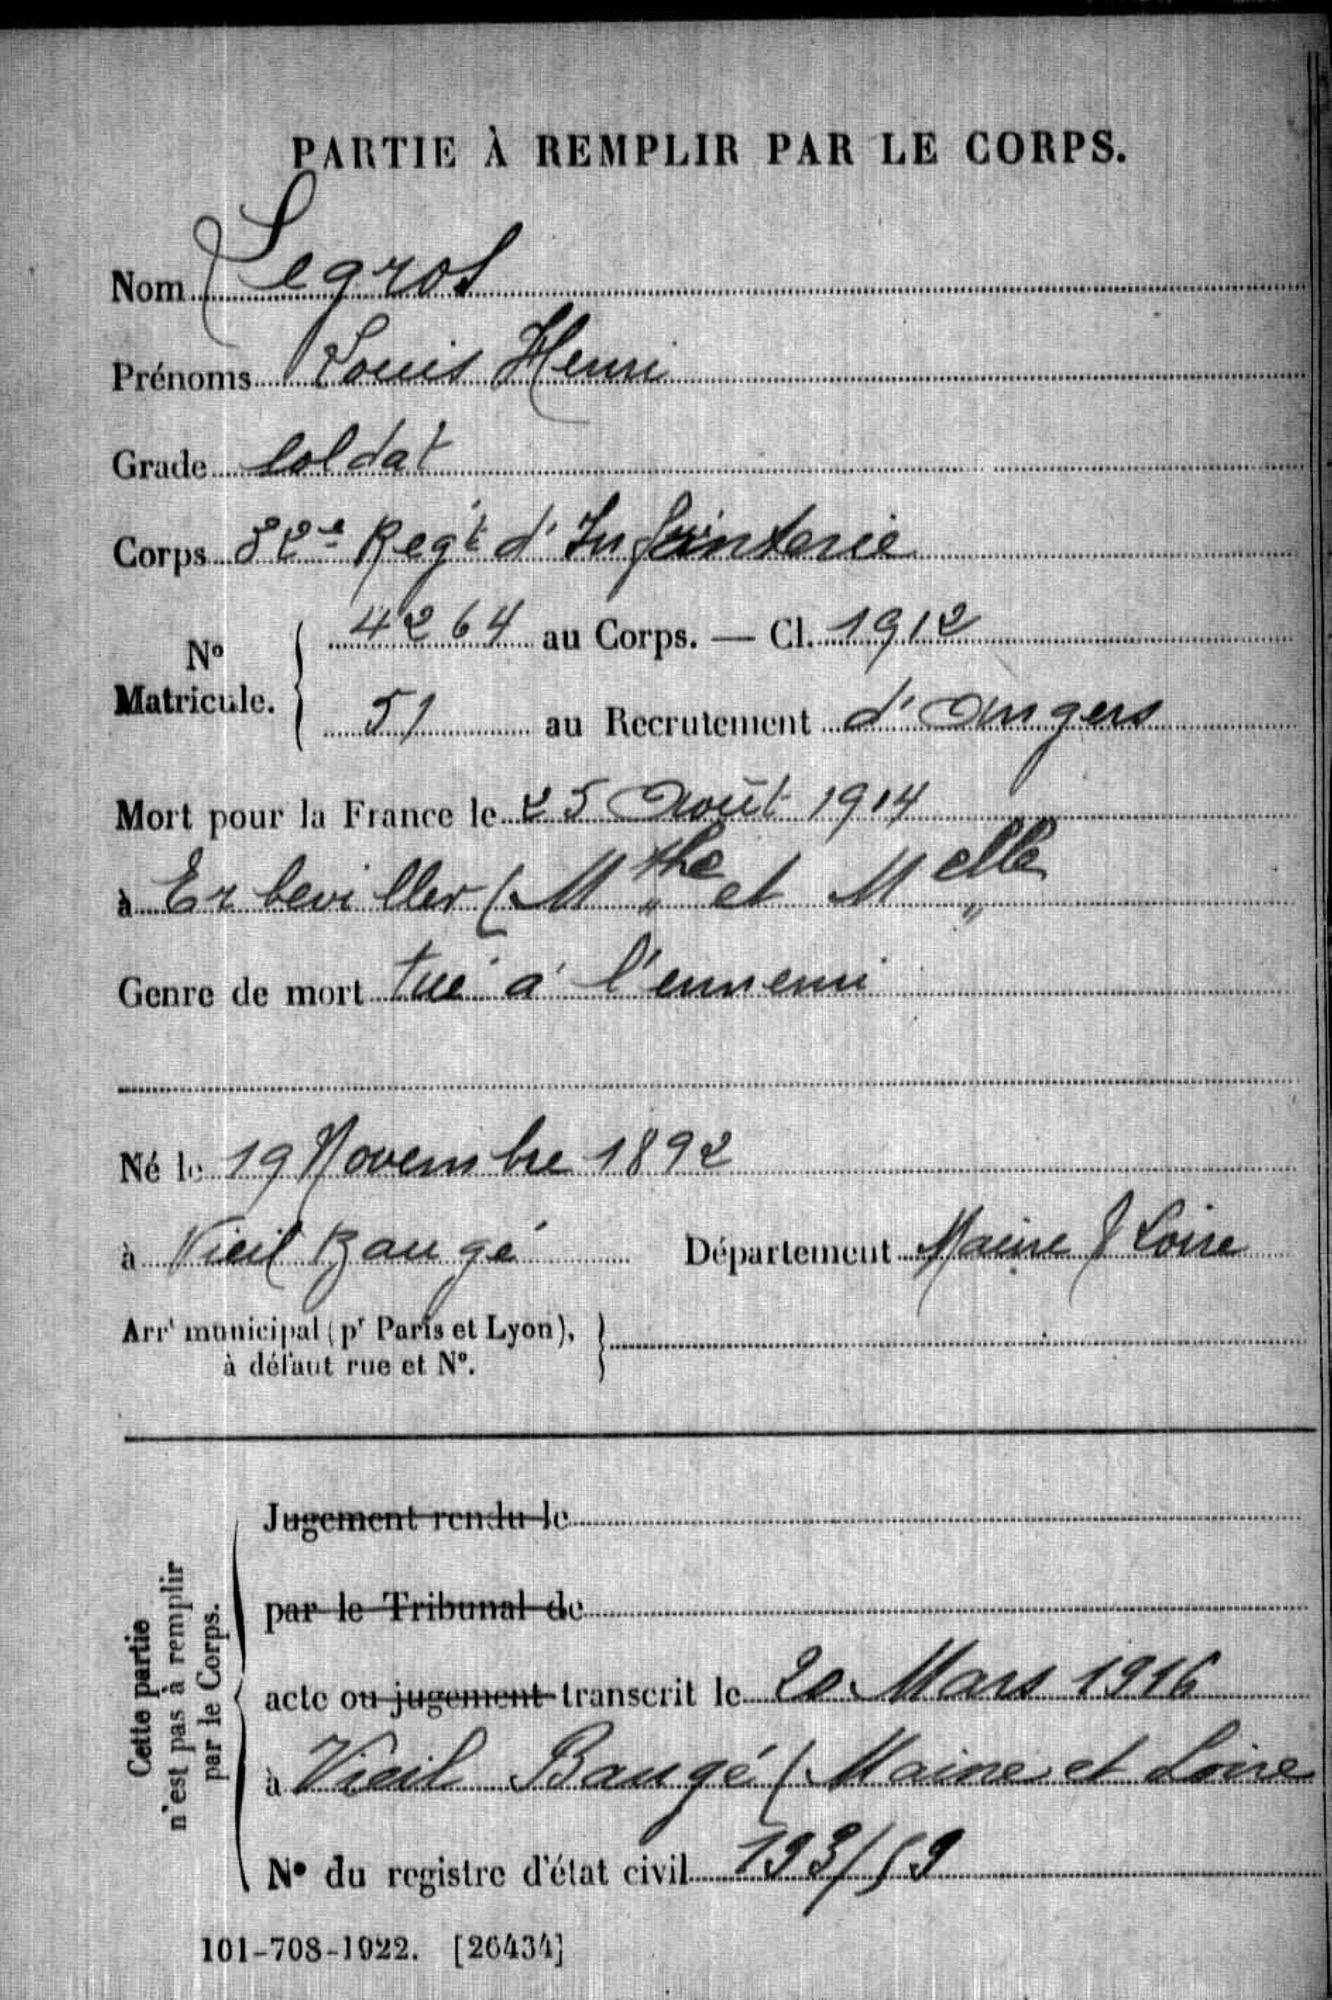 PARTIE À REMPLIR PAR LE CORPS.
Nom Legros
Prénoms Louis Henri
Grade soldat
Corps 32e Regt d'Infanterie
No Matricule. 4264 au Corps. — Cl. 1912
51 au Recrutement d'Angers
Mort pour la France le 25 Août 1914
à Erbeviller (Mthe et Melle
Genre de mort tué à l'ennemi
Né le 19 Novembre 1892
à Vieil Baugé Département Maine & Loire
Arrt municipal (pr Paris et Lyon),
à défaut rue et No.
Cette partie
n'est pas à remplir
par le Corps.
Jugement rendu le
par le Tribunal de
acte ou jugement transcrit le 20 Mars 1916
à Vieil Baugé (Maine et Loire
No du registre d'état civil 193/59
101-708-1922. [26434]